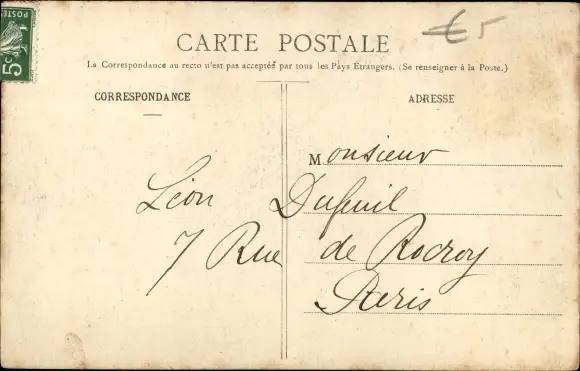 POSTES
5c
€5
CARTE POSTALE
La Correspondance au recto n'est pas acceptée par tous les Pays Étrangers. (Se renseigner à la Poste.)
CORRESPONDANCE
ADRESSE
Monsieur
Léon Dufeuil
7 Rue de Rocroy
Paris